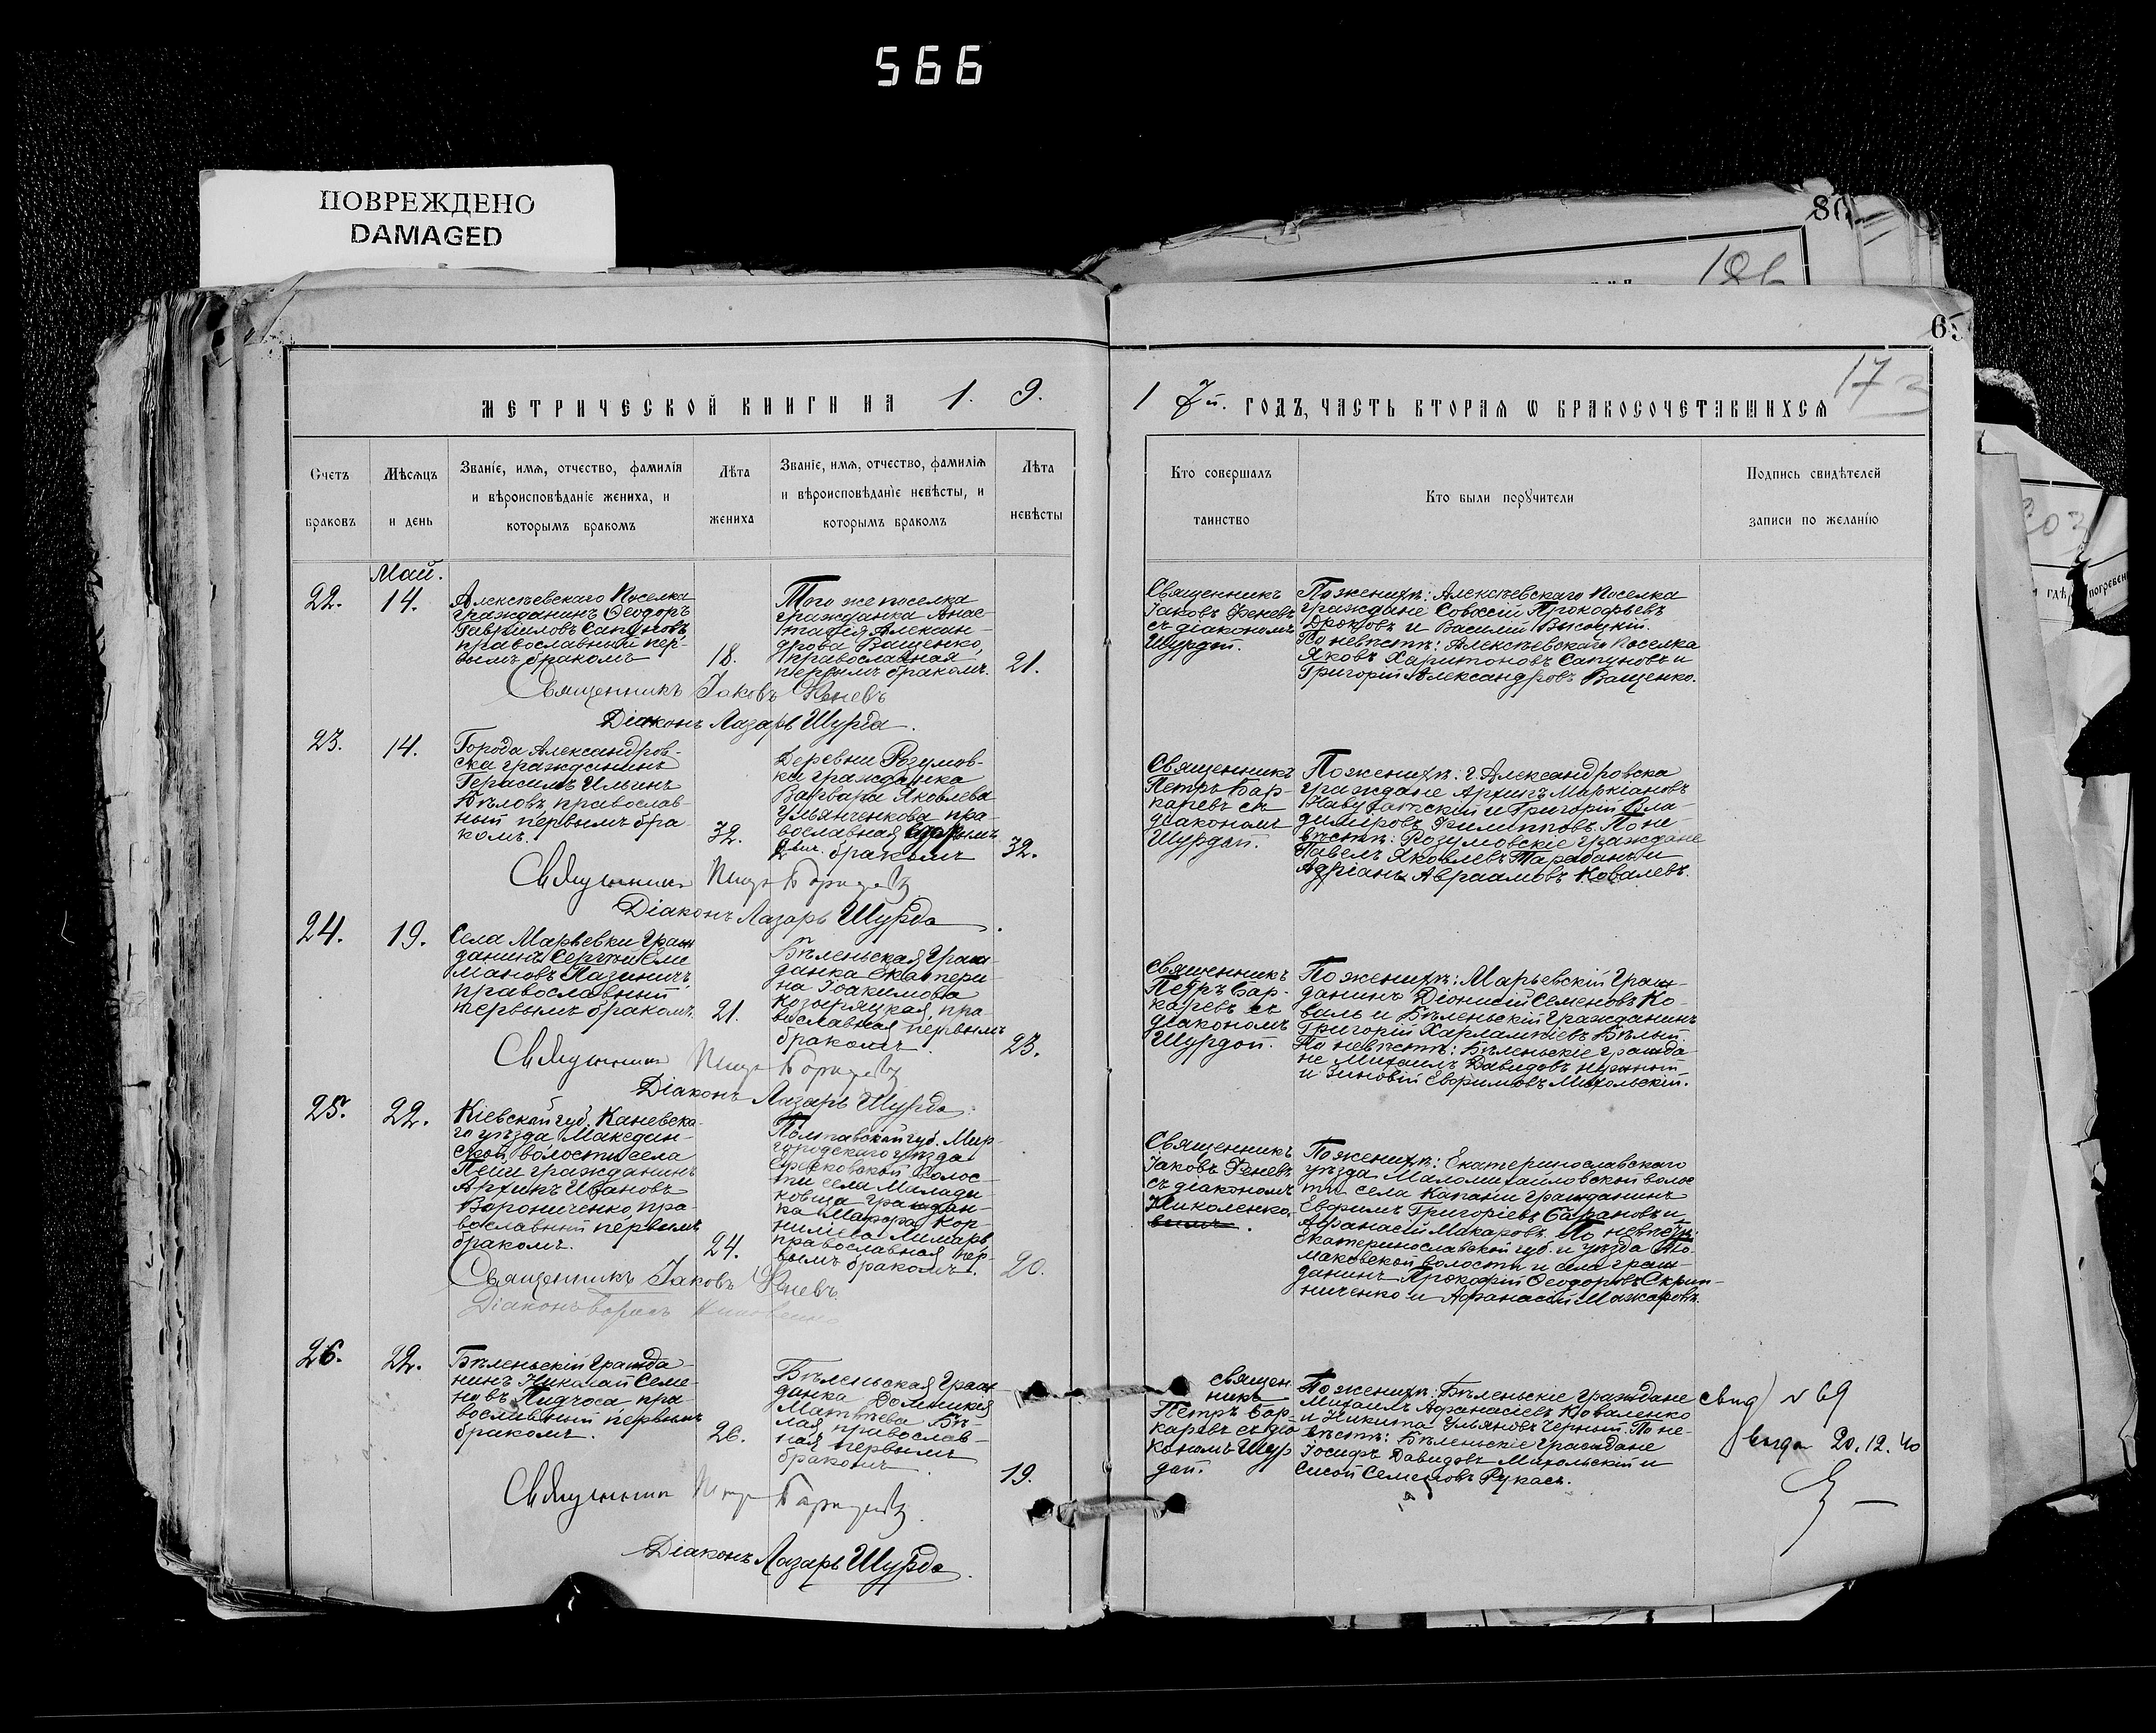 566
ПОВРЕЖДЕНО
DAMAGED
80
186
65
173
МЕТРИЧЕСКОЙ КНИГИ НА 1. 9. 1 7й. ГОДЪ, ЧАСТЬ ВТОРАЯ Ѡ БРАКОСОЧЕТАВШИХСЯ
Счетъ браковъ
Мѣсяцъ и день
Званіе, имя, отчество, фамилія
и вѣроисповѣданіе жениха, и
которымъ бракомъ
Лѣта жениха
Званіе, имя, отчество, фамилія
и вѣроисповѣданіе невѣсты, и
которымъ бракомъ
Лѣта невѣсты
Кто совершалъ
таинство
Кто были порꙋчители
Подпись свидѣтелей
записи по желанію
Май.
22.
14.
Алексѣевскаго Поселка
гражданинъ Ѳеодоръ
Гавриловъ Сапуновъ
православный пер-
вымъ бракомъ
18.
Того же поселка
гражданка Анас-
тасія Алексан-
дрова Ващенко,
православная
первымъ бракомъ.
21.
Священникъ
Іаковъ Феневъ
съ діакономъ
Шурдой.
По женихѣ: Алексѣевскаго Поселка
граждане Прокофьевъ
и Василій Высоцкій.
По невѣстѣ: Алексѣевскаго Поселка
Яковъ Харитоновъ Сапуновъ и
Григорій Александровъ Ващенко.
Священникъ Іаковъ Феневъ
Діаконъ Лазарь Шурда.
23.
14.
Города Александров-
ска гражданинъ
Герасимъ Ильинъ
Бѣловъ православ-
ный первымъ бра-
комъ.
32.
Деревни Розумов-
ки гражданка
Варвара Яковлева
Ульянченкова пра-
вославная вторымъ
бракомъ
32.
Священникъ
Петръ Бар-
каревъ съ
діакономъ
Шурдой.
По женихѣ: г. Александровска
граждане Архипъ Маркіановъ
и Григорій Вла-
диміровъ Филипповъ. По не-
вѣстѣ: Розумовскіе граждане
Павелъ Яковлевъ Тарабанъ и
Адріанъ Авраамовъ Ковалевъ.
Священникъ Петръ
Діаконъ Лазарь Шурда.
24.
19.
Села Марьевки Граж
данинъ Сергѣй Ели
мановъ Пазиничъ,
православный
первымъ бракомъ.
21.
Бѣленьская Граж-
данка Екатери-
на Іоакимова
Козыряцкая, пра-
вославная первымъ
бракомъ.
23.
Священникъ
Петръ Бар-
каревъ съ
діакономъ
Шурдой.
По женихѣ: Марьевскій Граж-
данинъ Діонисій Семеновъ Ко-
валь и Бѣленьскій Гражданинъ
Григорій Харлампіевъ Бѣлый.
По невѣстѣ: Бѣленьскіе Гражда-
не Михаилъ Давидовъ
и Зиновій Евфимовъ Михольскій.
Священникъ Петръ
Діаконъ Лазарь Шурда.
25.
22.
Кіевской губ. Каневска-
го уѣзда, Македон-
ской волости села
Пеіи гражданинъ
Архипъ Ивановъ
Ворониченко, пра-
вославный первымъ
бракомъ.
24.
Полтавской губ. Мир-
городскаго уѣзда
волос-
ти села
граждан-
ка Марфа Кор-
нилiева Лимарь
православная пер-
вымъ бракомъ.
20.
Священникъ
Іаковъ Феневъ
съ діакономъ
Николенко
По женихѣ: Екатеринославскаго
уѣзда Маломихайловской волос
ти села гражданинъ
Евфимъ Григоріевъ Барановъ и
Афанасій Макаровъ. По невѣстѣ:
Екатеринославской губ. и уѣзда То-
маковской волости и села граж-
данинъ Прокофій Ѳеодоровъ Скрип-
ниченко и Афанасій Макаровъ.
Священникъ Іаковъ Феневъ.
Діаконъ
26.
22.
Бѣленьскій Гражда-
нинъ Николай Семе-
новъ Пидчоса, пра-
вославный первымъ
бракомъ.
26.
Бѣленьская Граж-
данка Домникія
Матѳѣева Бѣ-
лая, православ-
ная первымъ
бракомъ.
19.
Священ
никъ
Петръ Бар-
каревъ съ діа
кономъ Шур
дой.
По женихѣ: Бѣленьскіе Граждане
Михаилъ Афанасіевъ Коваленко
и Никита Ульяновъ Черный. По не-
вѣстѣ: Бѣленьскіе Граждане
Іосифъ Давидовъ Михольскій и
Сисой Семеновъ Рукасъ.
свид № 69
выдан 20.12.40
Священникъ Петръ
Діаконъ Лазарь Шурда.